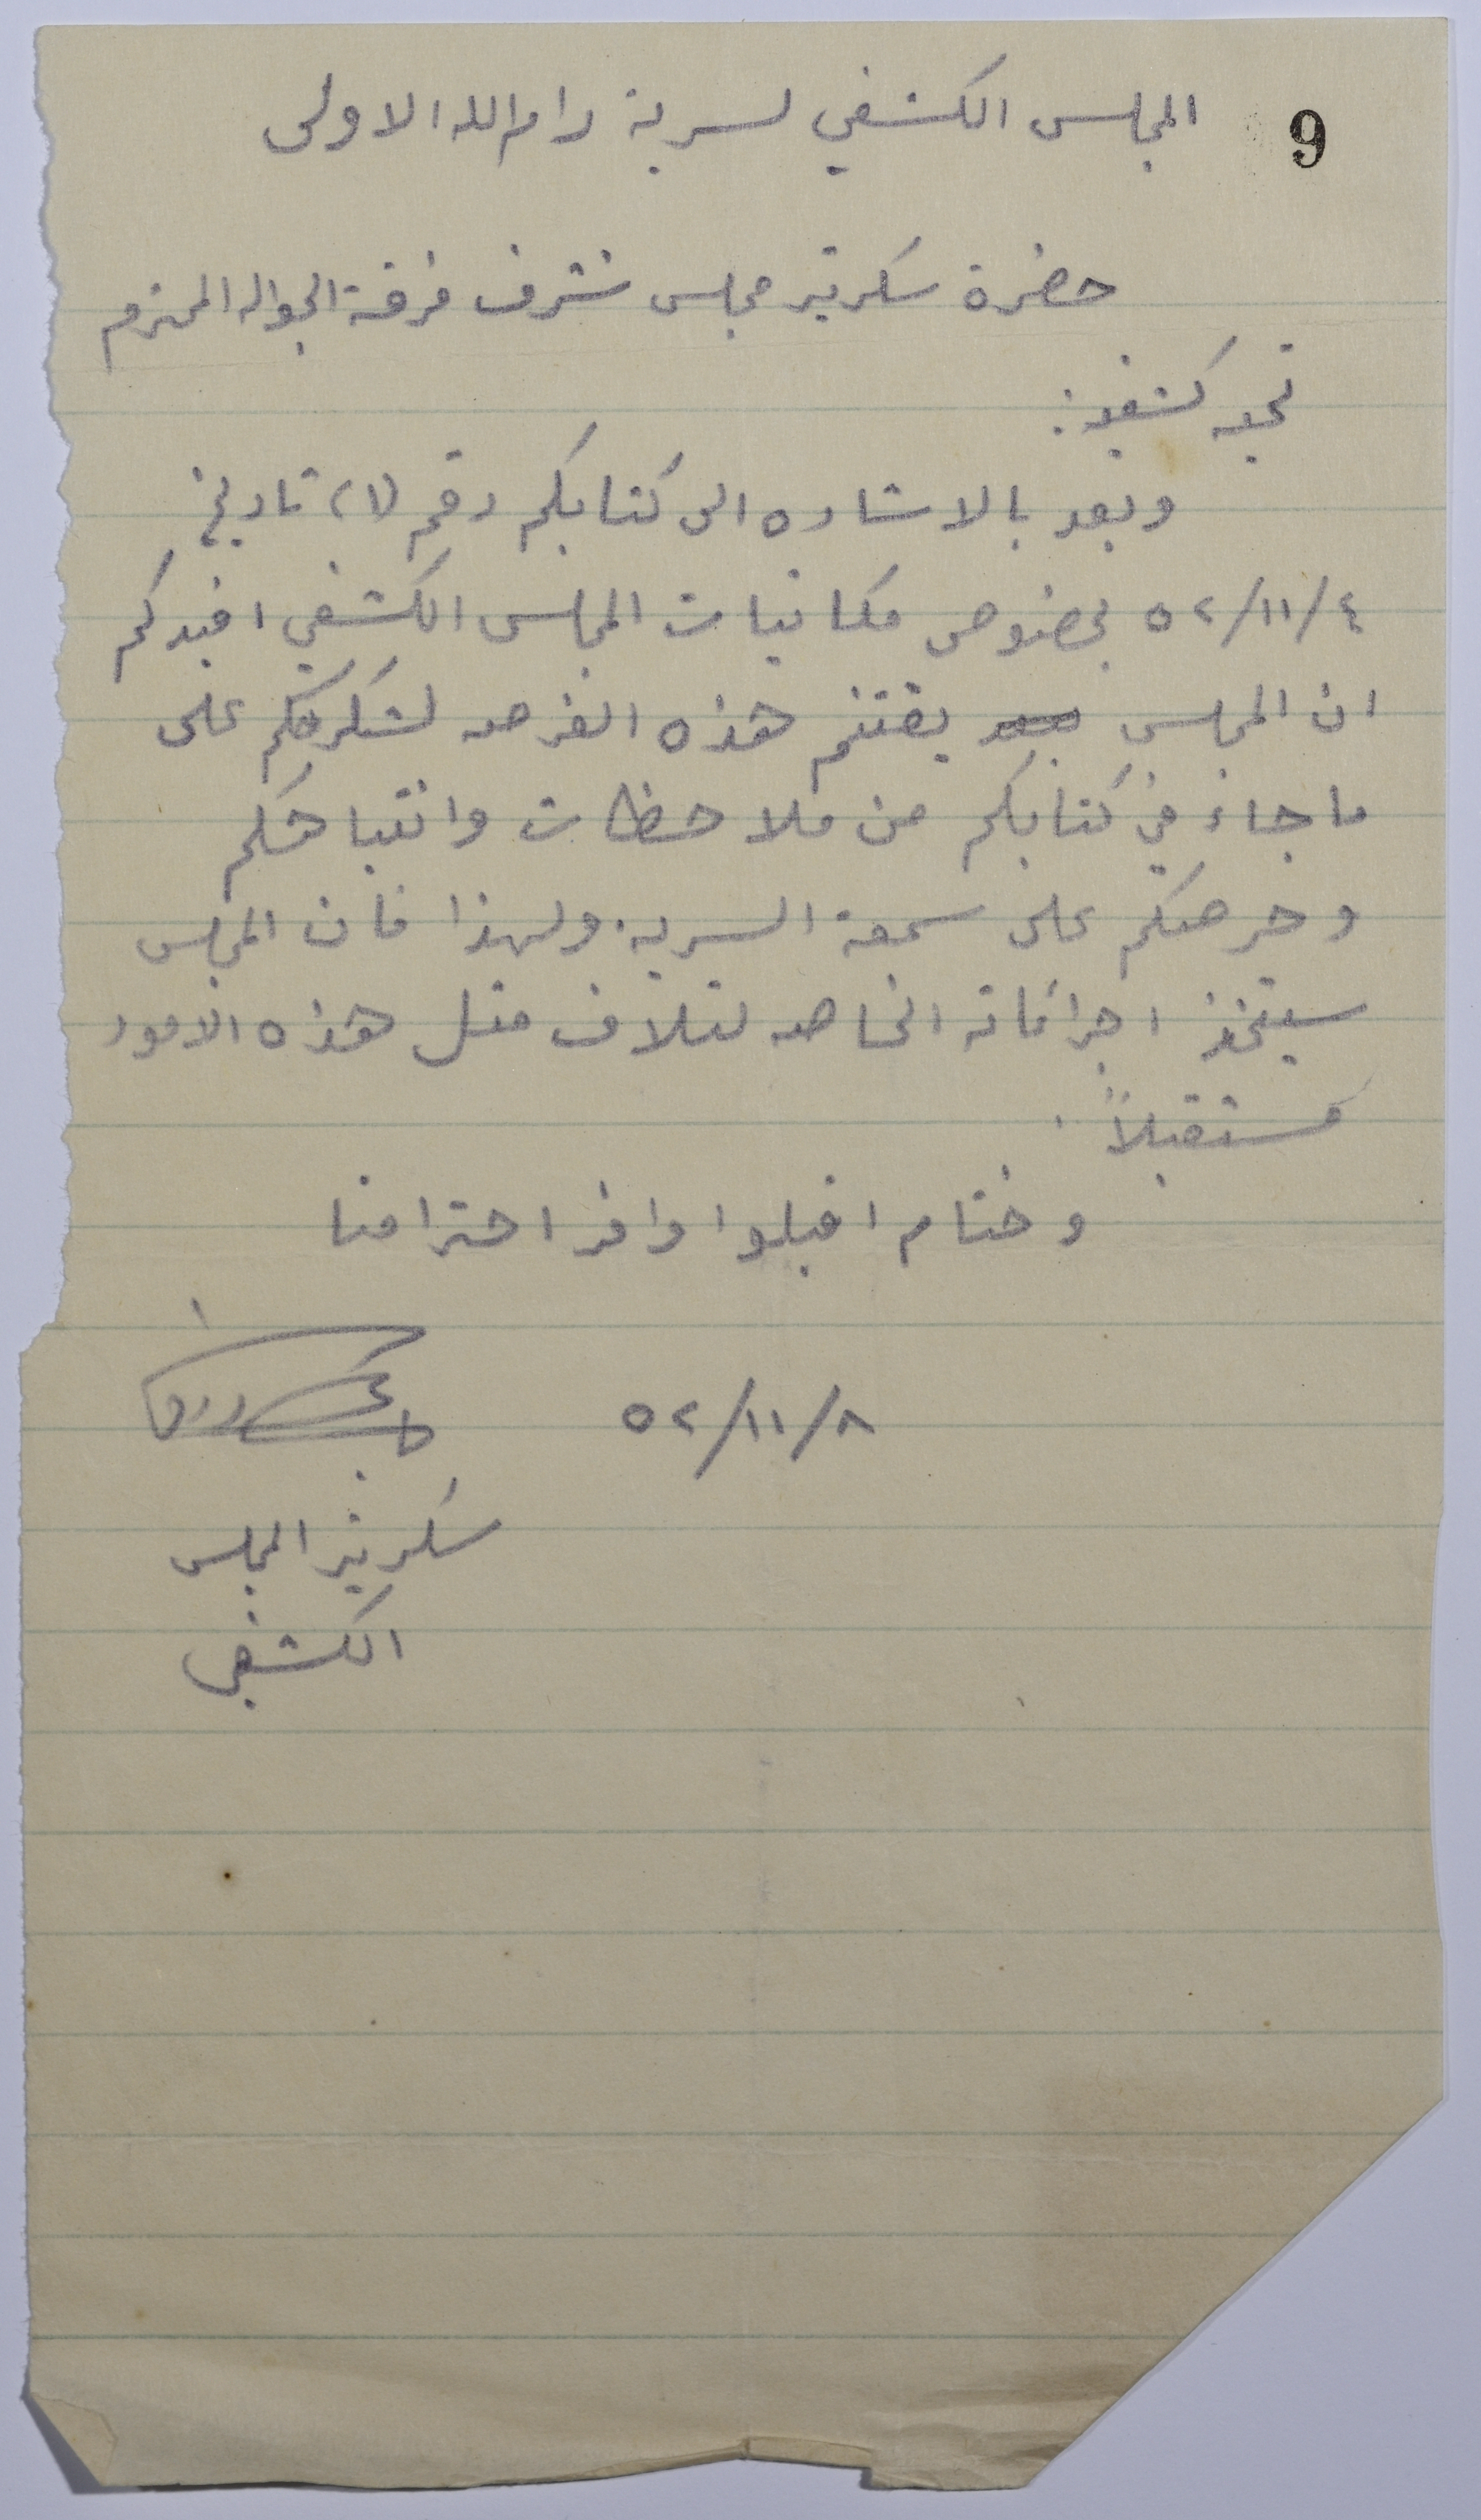 9
المجلس الكشفي لسرية رام الله الاولى
حضرة سكرتير مجلس شرف فرقة الجواله المحترم
تحيه كشفيه:
وبعد بالاشاره الى كتابكم رقم (٢) تاريخ
٥٢/١١/٤ بخصوص مكاتبات المجلس الكشفي افيدكم
ان المجلس يغتنم هذه الفرصه لشكركم على
ما جاء في كتابكم من ملاحظات وانتباهكم
وحرصكم على سمعة السريه. ولهذا فان المجلس
سيتخذ اجراءاته الخاصه لتلاف مثل هذه الامور
مستقبلاً .
وختام اقبلوا وافر احترامنا
٥٢/١١/٨
سكرتير المجلس
الكشفي